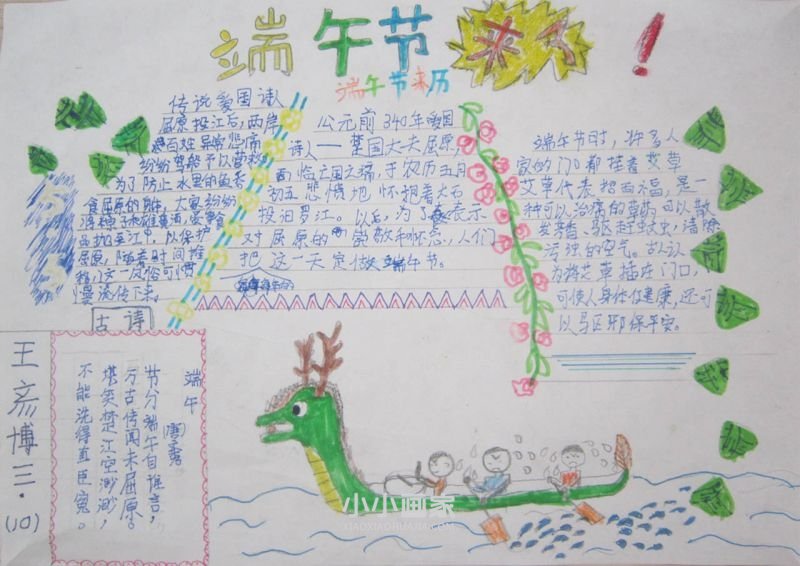 端午节来了！
端午节来历
传说爱国诗人
屈原投江后，两岸
百姓异常悲痛
纷纷驾船予以
为了防止水里的鱼
食屈原的身体，大家纷纷
品抛至江中，以保护
屈原，随着时间推
移，这一风俗可惯
慢流传下来。
公元前340年爱国
诗人——楚国大夫屈原，
面临亡国之痛，于农历五月
初五悲愤地怀抱着大石
投汨罗江。以后，为了表示
对屈原的崇敬和怀念，人们
把这一天定做端午节。
端午节时，许多人
家的门口都挂着艾草
艾草代表招百福，是一
种可以治病的草药，可以散
发芳香、驱赶蚊虫，清除
污浊的空气。古人认
为将艾草插在门口，
可使人身体健康，还可
以驱邪保平安。
古诗
端午
唐
节分端午自谁言，
万古传闻未屈原。
堪笑楚江空渺渺，
不能洗得直臣冤。
王彦博三·(10)
小小画家
XIAOXIAOHUAJIA.COM